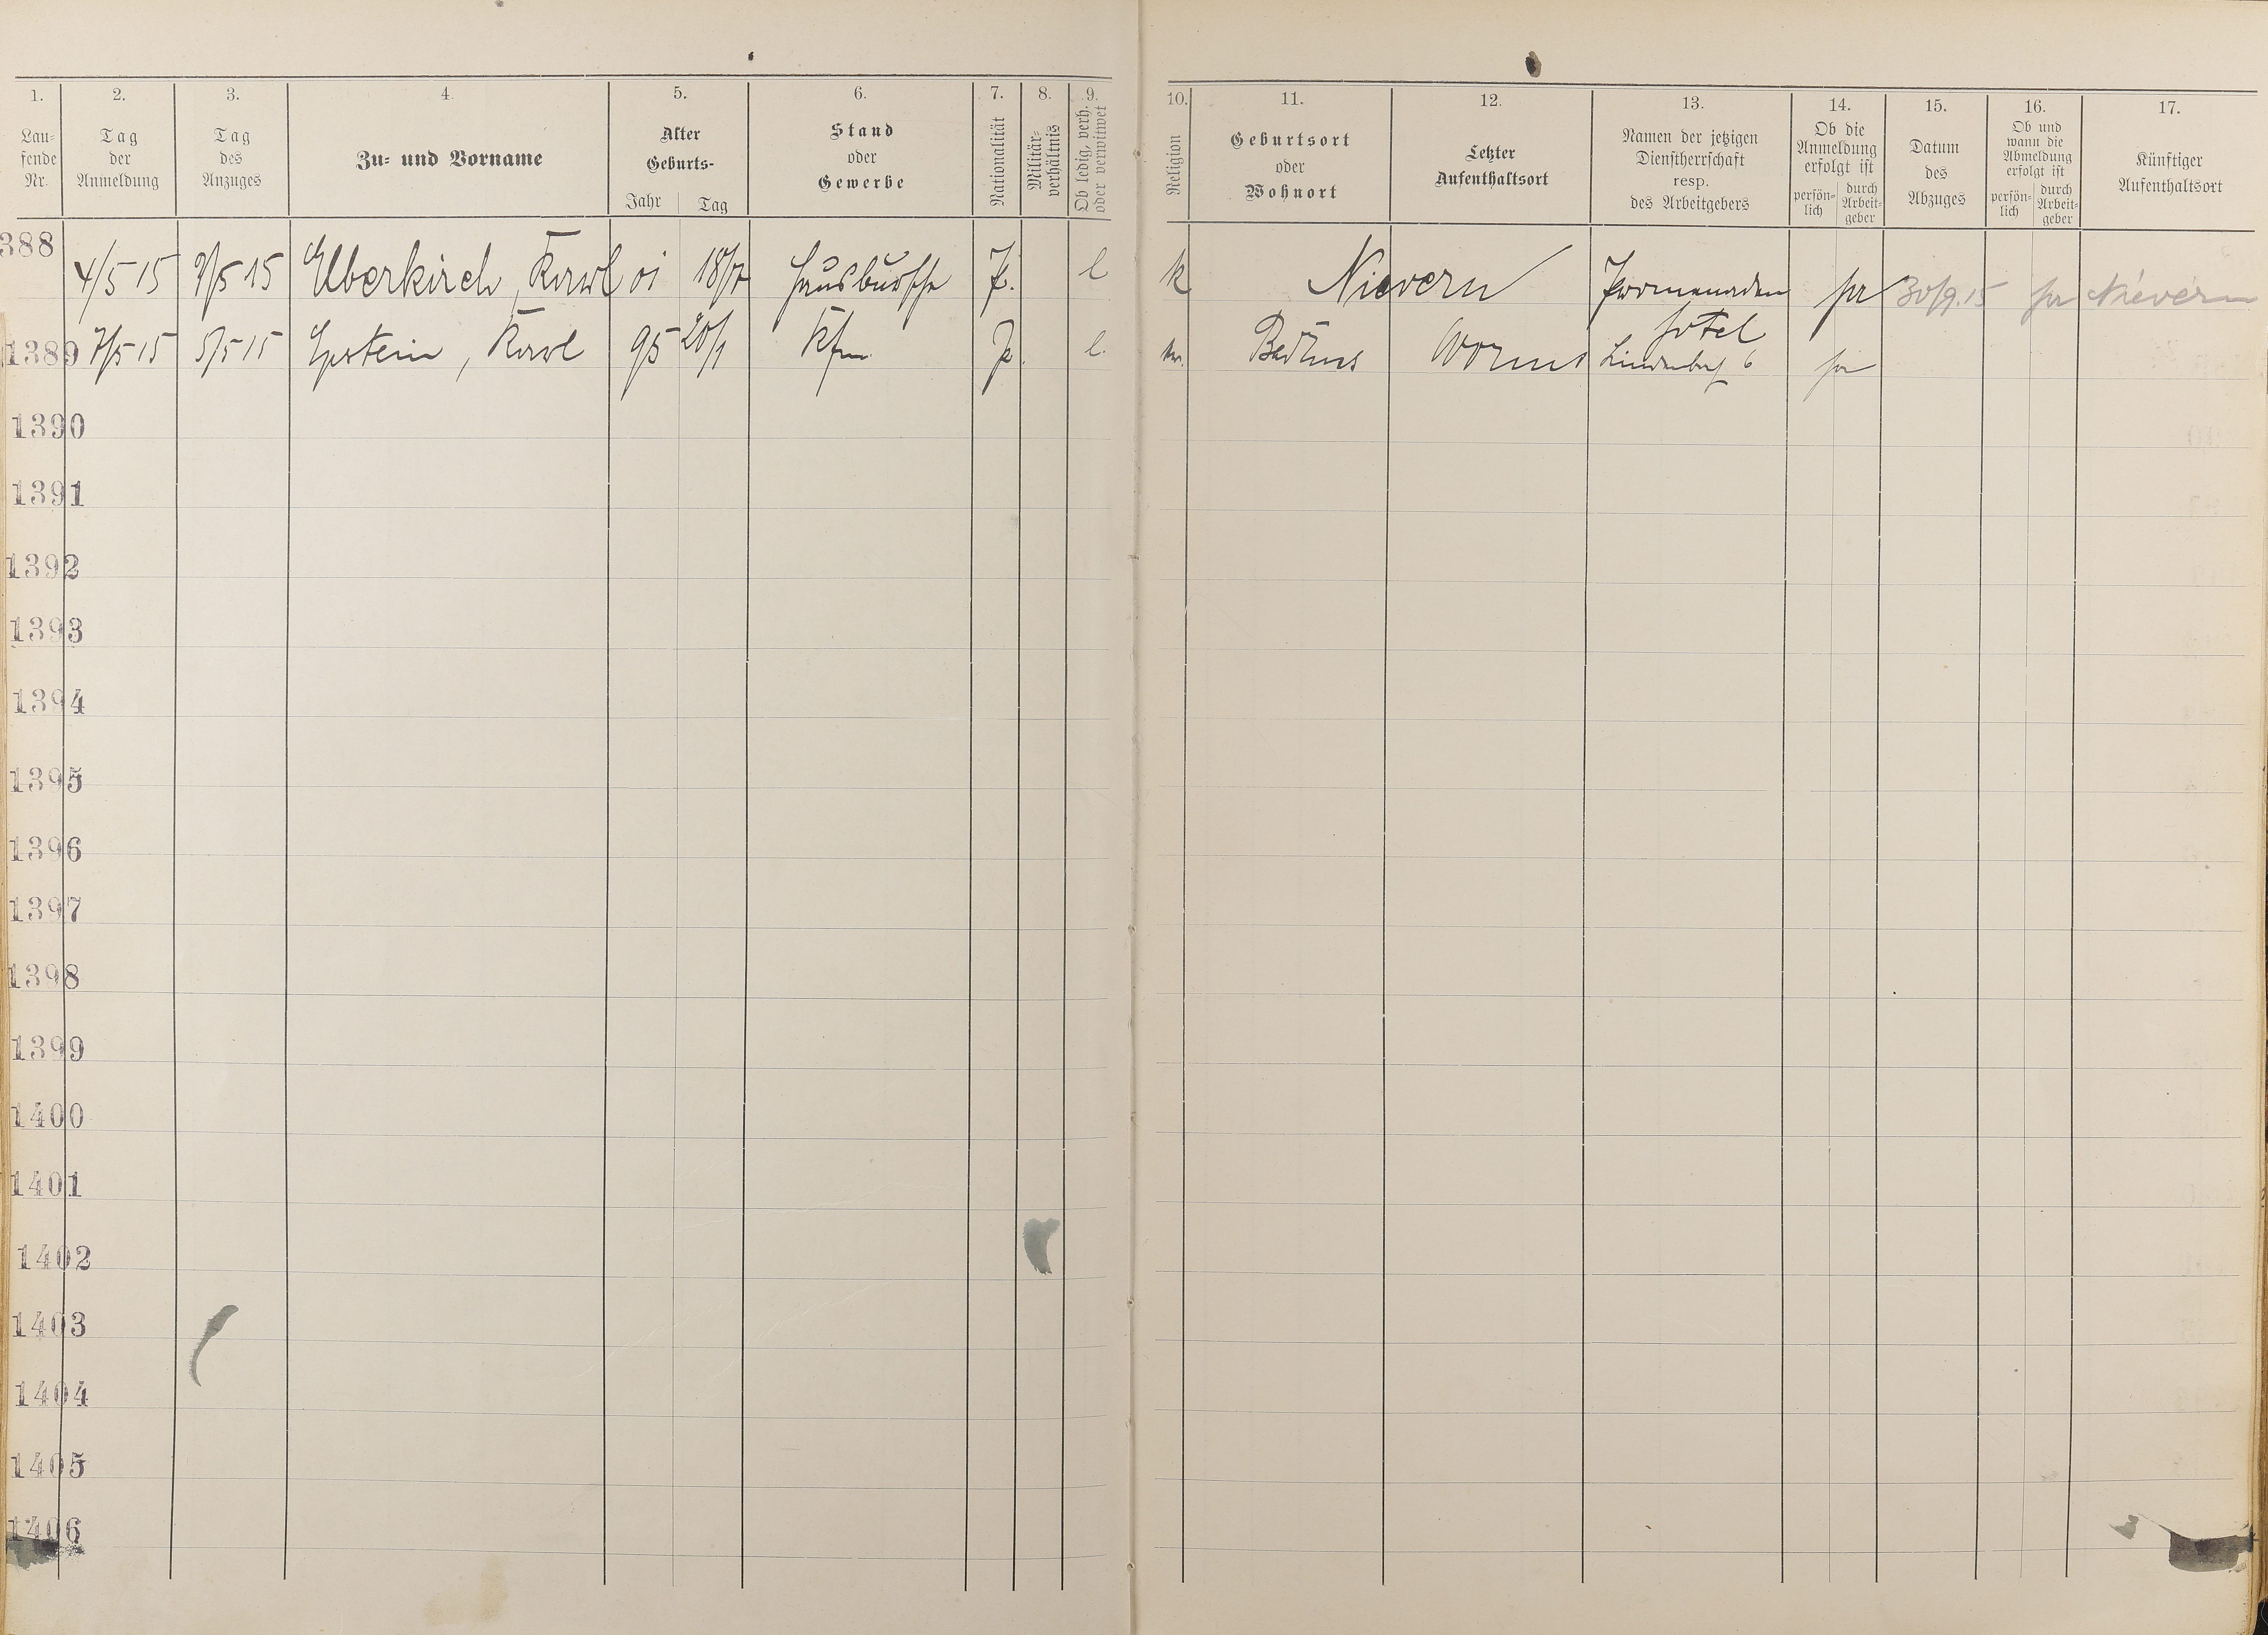 1. 2. 3. 4. 5. 6. 7. 8. 9. 10. 11. 12. 13. 14. 15. 16. 17.
Lau-
fende
Nr.
Tag
der
Anmeldung
Tag
des
Anzuges
Zu- und Vorname
Alter
Geburts-
Jahr
Tag
Stand
oder
Gewerbe
Nationalität
Militär-
verhältnis
Ob ledig, verh.
oder verwitwet
Religion
Geburtsort
oder
Wohnort
Letzter
Aufenthaltsort
Namen der jetzigen
Dienstherrschaft
resp.
des Arbeitgebers
Ob die
Anmeldung
erfolgt ist
persön-
lich
durch
Arbeit-
geber
Datum
des
Abzuges
Ob und
wann die
Abmeldung
erfolgt ist
persön-
lich
durch
Arbeit-
geber
Künftiger
Aufenthaltsort
388 4/5 15 /5 15 Elberkirch, Karl 01 18/7 Hausbursche P. l k Nievern Promenaden ja 30/9.15 ja Nievern
Hotel
1389 7/5 15 5/5 15 Epstein, Karl 95 20/1 Kfm P. l. Worms 6 ja
1390
1391
1392
1393
1394
1395
1396
1397
1398
1399
1400
1401
1402
1403
1404
1405
1406